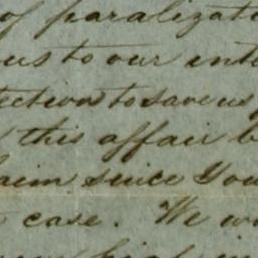 of paralizati
us to our inte
tection to save us
this affair b
aim since You
case. We w